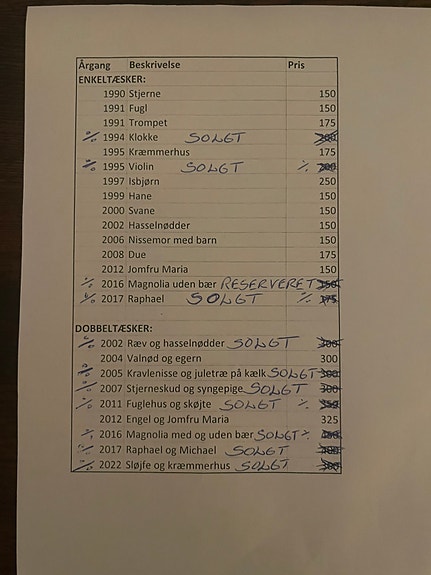 Årgang Beskrivelse Pris
ENKELTÆSKER:
1990 Stjerne 150
1991 Fugl 150
1991 Trompet 175
1994 Klokke SOLGT
1995 Kræmmerhus 175
1995 Violin SOLGT
1997 Isbjørn 250
1999 Hane 150
2000 Svane 150
2002 Hasselnødder 150
2006 Nissemor med barn 150
2008 Due 175
2012 Jomfru Maria 150
2016 Magnolia uden bær RESERVERET 150
2017 Raphael SOLGT 175
DOBBELTÆSKER:
2002 Ræv og hasselnødder SOLGT 300
2004 Valnød og egern 300
2005 Kravlenisse og juletræ på kælk SOLGT 300
2007 Stjerneskud og syngepige SOLGT 300
2011 Fuglehus og skøjte SOLGT 350
2012 Engel og Jomfru Maria 325
2016 Magnolia med og uden bær SOLGT
2017 Raphael og Michael SOLGT
2022 Sløjfe og kræmmerhus SOLGT